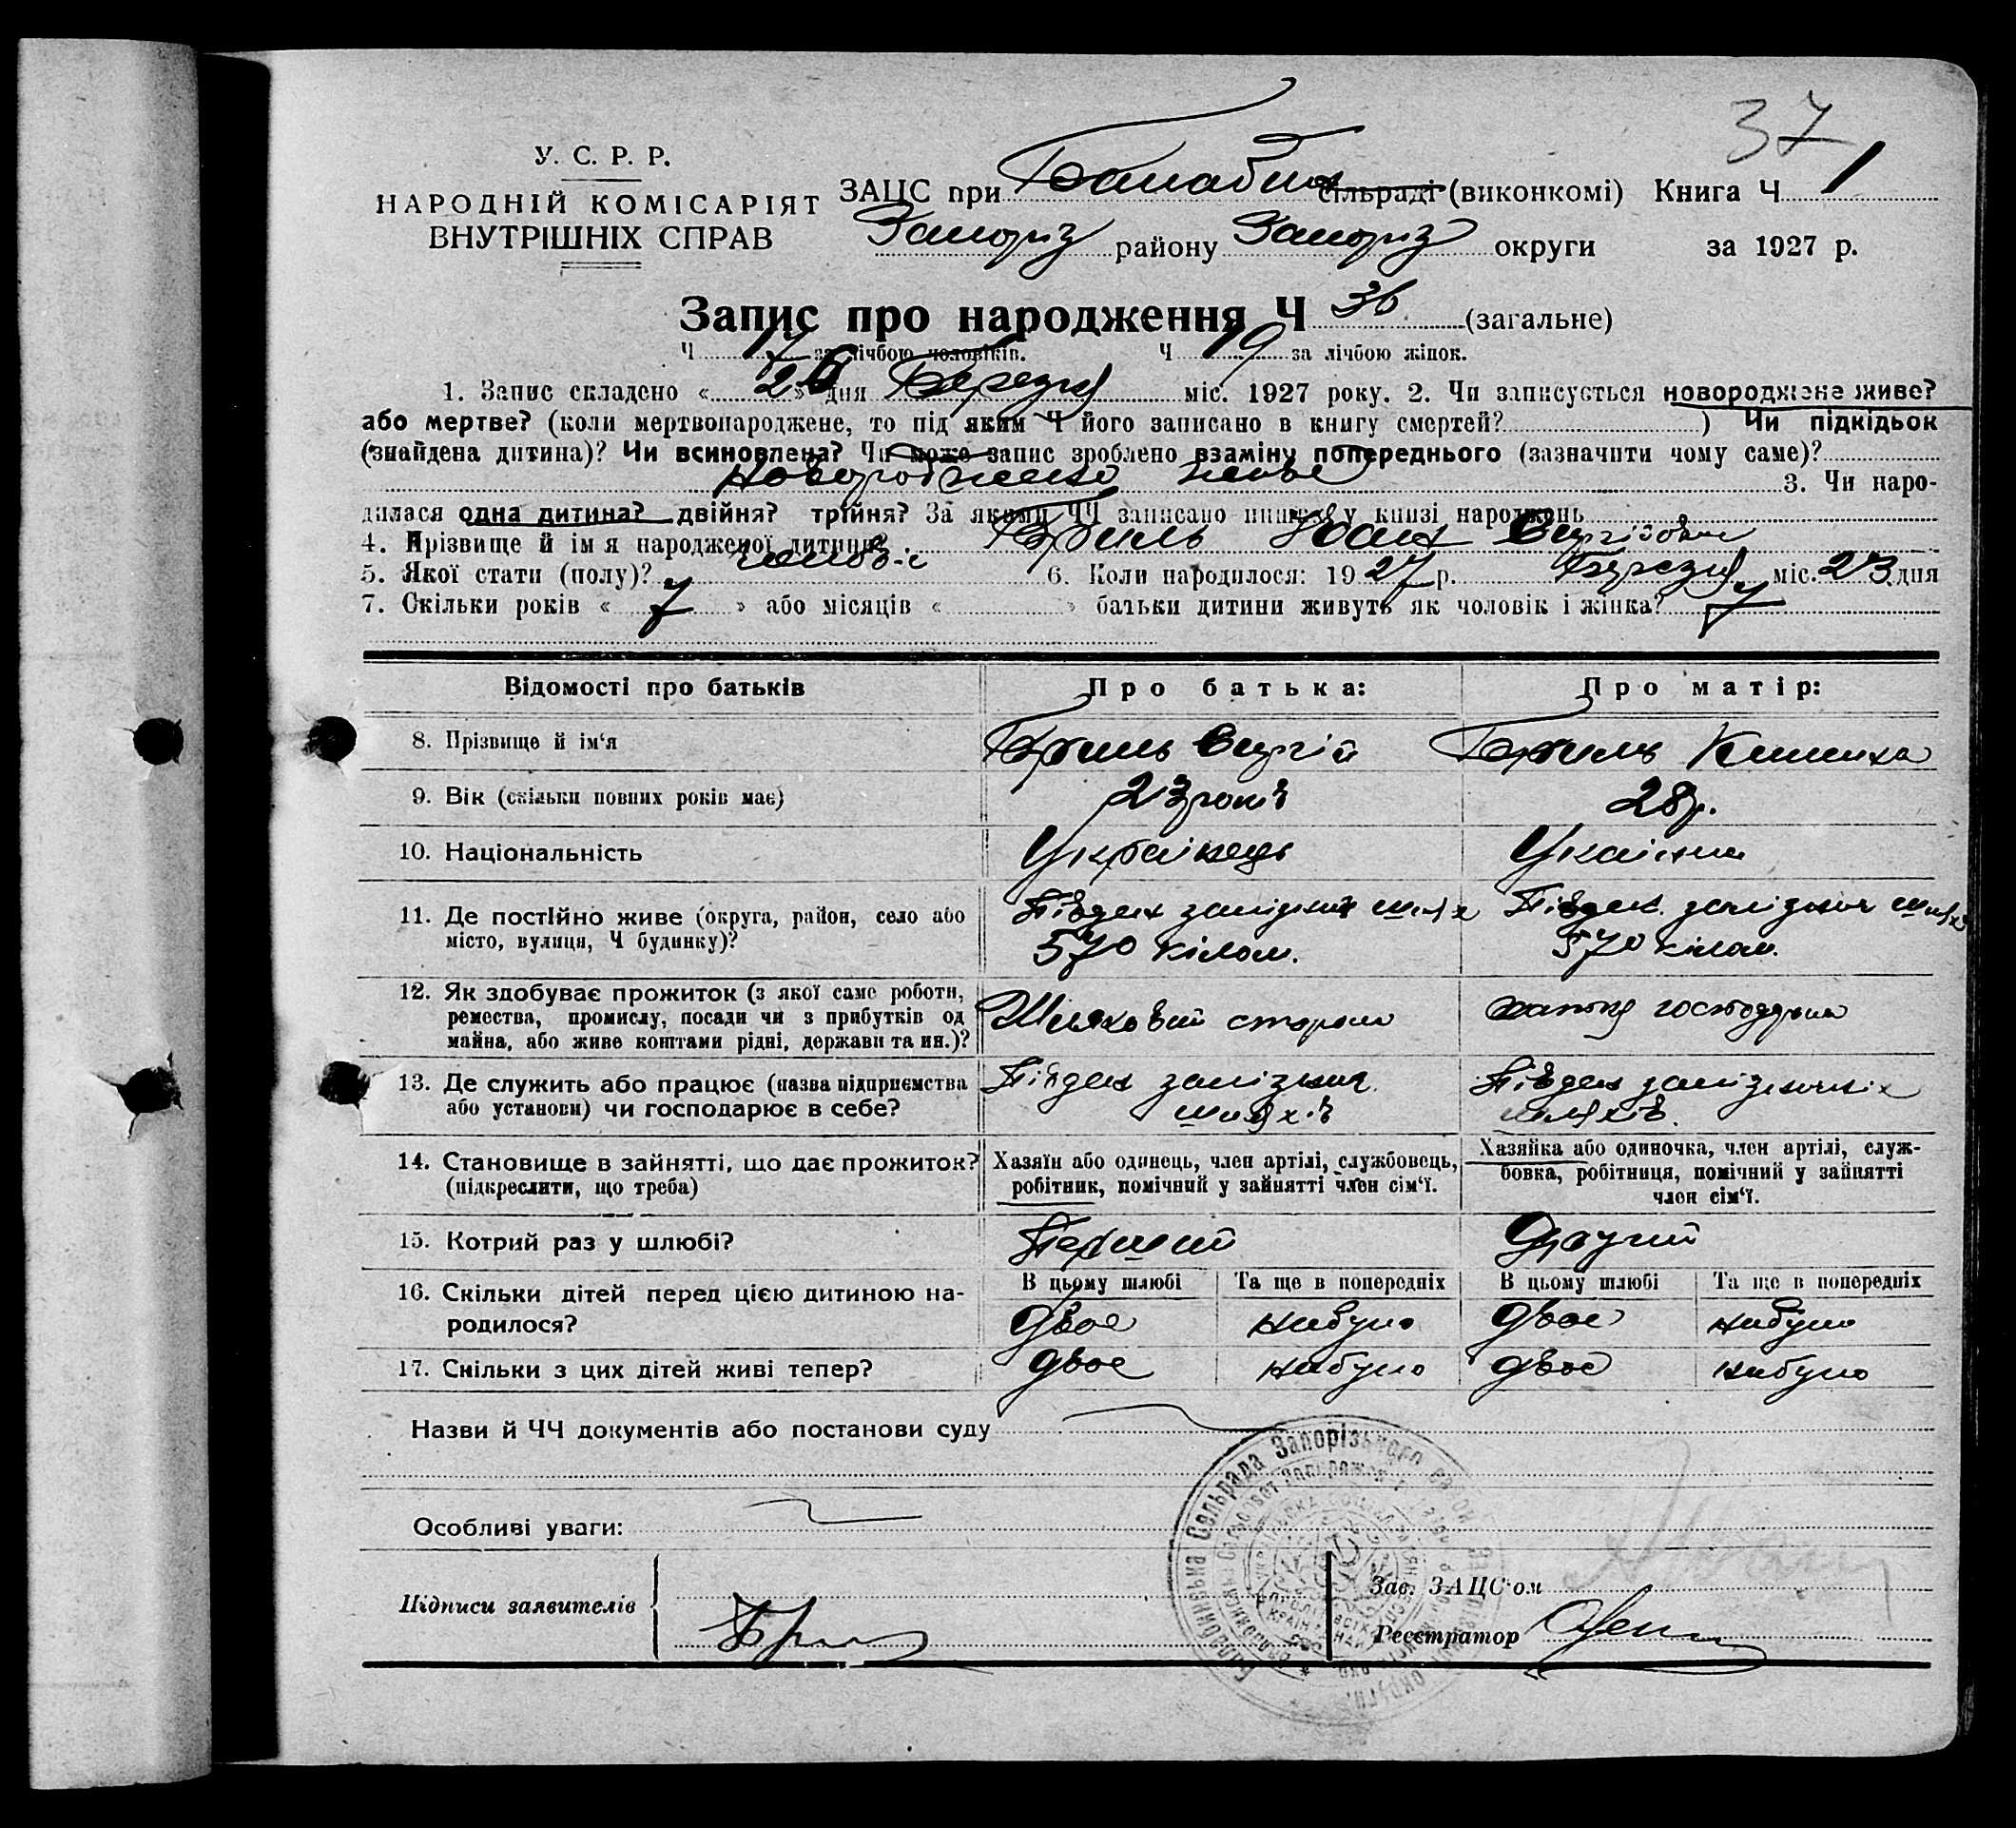 37
У. С. Р. Р.
НАРОДНІЙ КОМІСАРІЯТ
ВНУТРІШНІХ СПРАВ
ЗАЦС при Балабин сільраді (виконкомі) Книга Ч 1
Запоріз району Запоріз округи за 1927 р.
Запис про народження Ч 36 (загальне)
Ч 17 за лічбою чоловіків. Ч 19 за лічбою жінок.
1. Запис складено « 26 » дня Березня міс. 1927 року. 2. Чи записується новороджене живе?
або мертве? (коли мертвонароджене, то під яким Ч його записано в книгу смертей? ) Чи підкідьок
(знайдена дитина)? Чи всиновлена? Чи може запис зроблено взаміну попереднього (зазначити чому саме)?
новородженно живе 3. Чи наро-
дилася одна дитина? двійня? трійня? За якими ЧЧ записано инших у книзі народжень
4. Прізвище й ім'я народженої дитини? Бриль Іван Сергійович
5. Якої стати (полу)? чолов-ї 6. Коли народилося: 1927 р. Березня міс. 23 дня
7. Скільки років « 7 » або місяців « » батьки дитини живуть як чоловік і жінка? 7
Відомості про батьків Про батька: Про матір:
8. Прізвище й ім'я Бриль Сергій Бриль
9. Вік (скільки повних років має) 23 років 28 р.
10. Національність Українець Укаінка
11. Де постійно живе (округа, район, село або місто, вулиця, Ч будинку)? Півден залізнич шлях Півден. залізнич шлях
570 кілом. 570 кілом.
12. Як здобуває прожиток (з якої саме роботи,
ремества, промислу, посади чи з прибутків од
майна, або живе коштами рідні, держави та ин.)? Шляховий сторож хатня господарка
13. Де служить або працює (назва підприємства
або установи) чи господарює в себе? Півден залізнич шляхів Півден залізничних шляхів.
14. Становище в зайнятті, що дає прожиток?
(підкреслити, що треба)
Хазяїн або одинець, член артілі, службовець,
робітник, помічний у зайнятті член сім'ї.
Хазяйка або одиночка, член артілі, служ-
бовка, робітниця, помічний у зайнятті
член сім'ї.
15. Котрий раз у шлюбі? Перший Другий
В цьому шлюбі Та ще в попередніх В цьому шлюбі Та ще в попередніх
16. Скільки дітей перед цією дитиною на-
родилося? двое небуло двое небуло
17. Скільки з цих дітей живі тепер? двое небуло двое небуло
Назви й ЧЧ документів або постанови суду
Особливі уваги:
Підписи заявителів
Зав. ЗАЦС'ом
Реєстратор
Балабинська Сельрада Запорізького